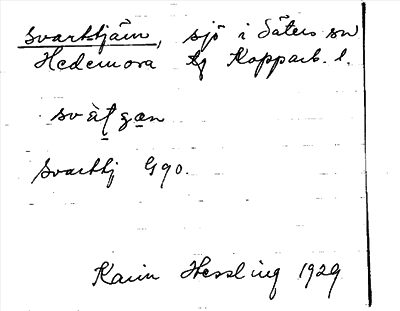 Svarttjärn, sjö i Säters sn
Hedemora tg Kopparb. l.
svàʈgən
Svarttj G90.
Karin Hessling 1929